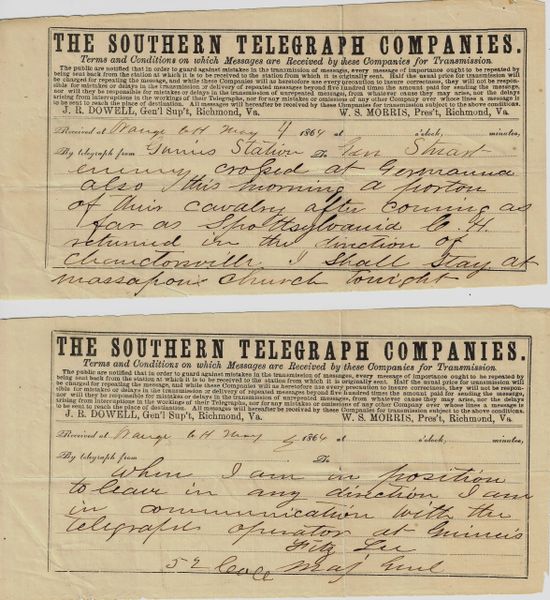 THE SOUTHERN TELEGRAPH COMPANIES.
Terms and Conditions on which Messages are Received by these Companies for Transmission
The public are notified that in order to guard against mistakes in the transmission of messages, every message of importance ought to be repeated by
being sent back from the station at which it is to be received to the station from which it is originally sent. Half the usual price for transmission will
be charged for repeating the message, and while these Companies will as heretofore use every precaution to insure correctness, they will not be respon-
sible for mistakes or delays in the transmission or delivery of repeated messages beyond five hundred times the amount paid for sending the message,
nor will they be responsible for mistakes or delays in the transmission of unrepeated messages, from whatever cause they may arise, nor for delays
arising from interruptions in the workings of their Telegraphs, nor for any mistakes or omissions of any other Company over whose lines a message is
to be sent to reach the place of destination. All messages will hereafter be received by these Companies for transmission subject to the above conditions.
J. R. DOWELL, Gen'l Sup't, Richmond, Va. W. S. MORRIS, Pres't, Richmond, Va.
Received at Orange C H May 4 1864 at o'clock, minutes,
By telegraph from Guinis Station To Gen Stuart
enemy crossed at Germanna
also this morning a portion
of their cavalry after coming as
far as Spottsylvania C. H.
returned in the direction of
Chancellorsville. I shall stay at
massapona church tonight
THE SOUTHERN TELEGRAPH COMPANIES.
Terms and Conditions on which Messages are Received by these Companies for Transmission
The public are notified that in order to guard against mistakes in the transmission of messages, every message of importance ought to be repeated by
being sent back from the station at which it is to be received to the station from which it is originally sent. Half the usual price for transmission will
be charged for repeating the message, and while these Companies will as heretofore use every precaution to insure correctness, they will not be respon-
sible for mistakes or delays in the transmission or delivery of repeated messages beyond five hundred times the amount paid for sending the message,
nor will they be responsible for mistakes or delays in the transmission of unrepeated messages, from whatever cause they may arise, nor for delays
arising from interruptions in the workings of their Telegraphs, nor for any mistakes or omissions of any other Company over whose lines a message is
to be sent to reach the place of destination. All messages will hereafter be received by these Companies for transmission subject to the above conditions.
J. R. DOWELL, Gen'l Sup't, Richmond, Va. W. S. MORRIS, Pres't, Richmond, Va.
Received at Orange C H May 1864 at o'clock, minutes,
By telegraph from To
where I am in position
to leave in any direction I am
in communication with the
telegraph operator at Guinis
Fitz Lee
52 Maj Genl